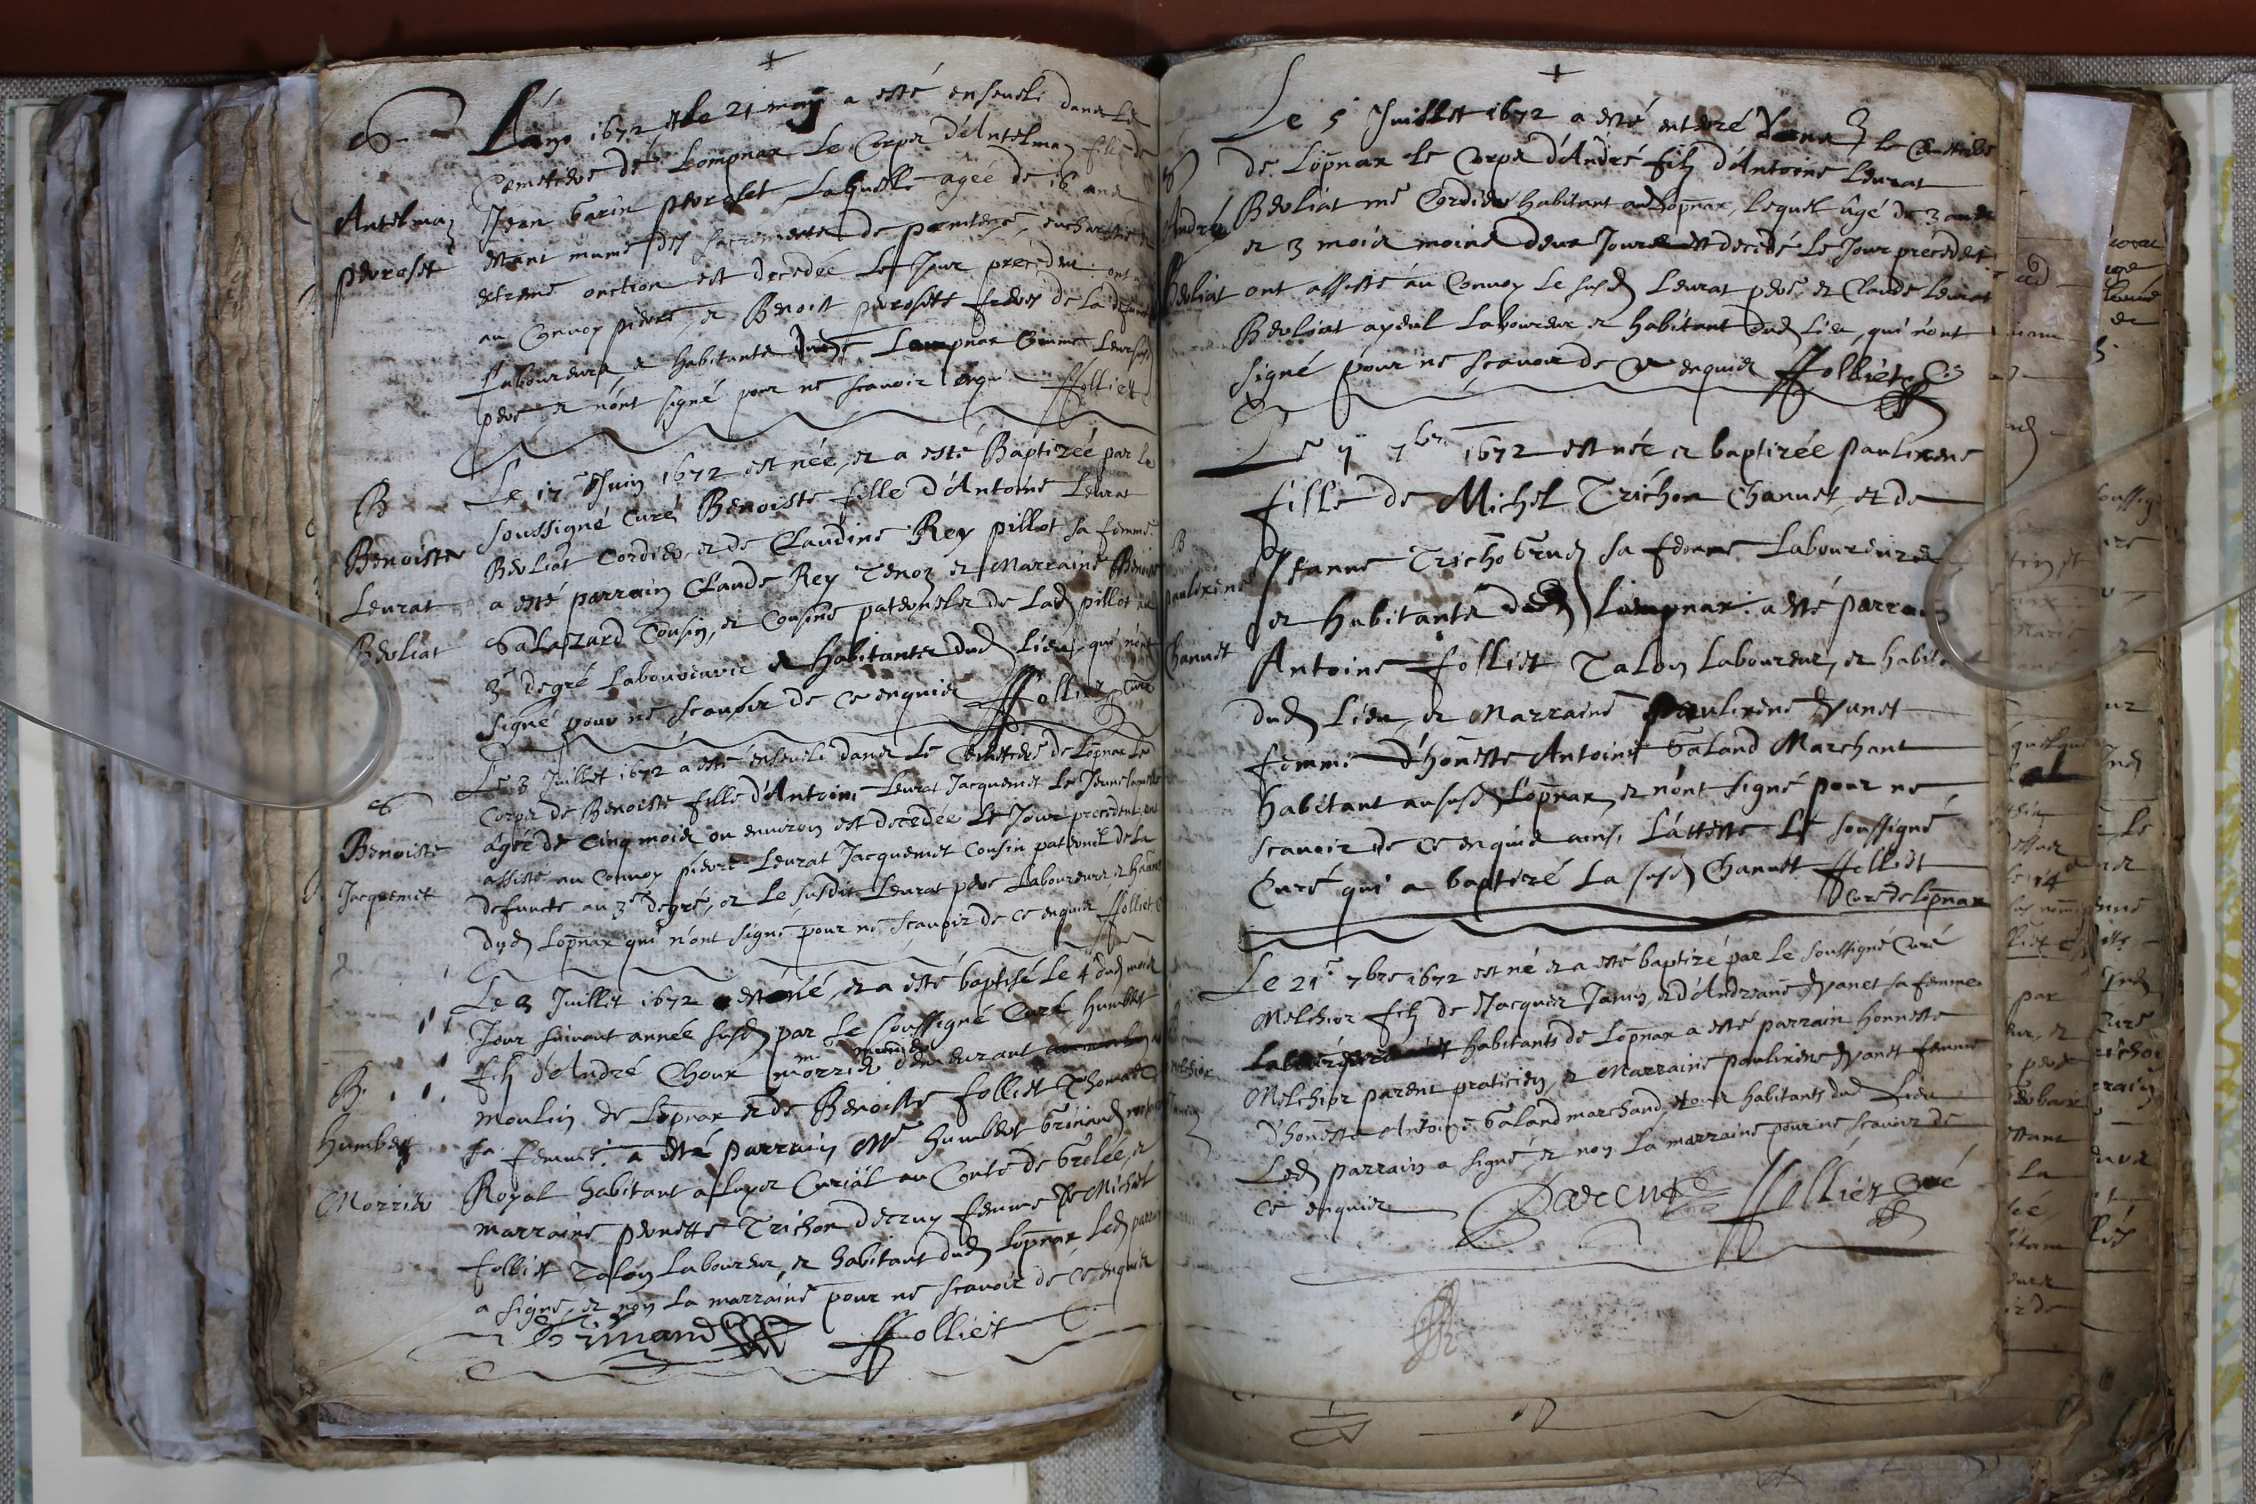 Lan 1672 et le 21 may a esté enseueli dans le
Cemetiere de Lompnax le Corps d'Antelma fille de
Jean Garin peroset laquelle agée de 16 ans
estant munie des sacrements de penitence, eucharistie
extreme onction est decedée le Jour precedent ont
au Convoy pierre, et Benoist peroset freres de la defuncte
Laboureurs, et habitants Lompnax Comme leur
pere et n'ont signé pour ne scauoir enquis ffolliet
Antelma
peroset
Le 17 Juin 1672 est née, et a esté Baptizée par le
soussigné curé Benoiste fille d'Antoine Leurat
Berliat Cordier et de Claudine Rey pillot sa femme
a esté parrain Claude Rey Tenoz et Marraine Benoiste
Salazard Cousin, et Cousine paternelle de Lad pillot au
3e degré Laboureurs et habitants dud lieu, qui n'ont
signé pour ne scauoir de ce enquis ffolliet Curé
B
Benoiste
Leurat
Berliat
Le 3 Juillet 1672 a esté enseueli dans le Cemetiere de Lopnax le
Corps de Benoiste fille d'Antoine Leurat Jacquemet le Jeune laquelle
âgée de Cinq mois ou environ est decedée le Jour precedent, ont
assisté au Convoy pierre Leurat Jacquemet Cousin paternel de la
defuncte au 3e degré, et le susdit Leurat pere Laboureurs, et habitants
dud Lopnax qui n'ont signé pour ne scauoir de ce enquis ffolliet C
Benoiste
Jacquemet
Le 3 Juillet 1672 est né, et a esté baptisé le 4e dud mois
Jour suivant année susd par le soussigné Curé humbert
filz d'André Choux morrier demeurant
moulin de Lopnax et de Benoiste folliet Thomas
sa femme. a esté parrain Me humbert Grimand
Royal habitant a Curial au Conté de Grolée, et
marraine pernette Trichon derruy femme de Michel
folliet Talon Laboureur, et habitant dud Lopnax, led parrain
a signé, et non la marraine pour ne scauoir de ce enquis
Grimand ffolliet C
B
humbert
Morrier
Le 5 Juillet 1672 a esté enterré dans le Cemetiere
de Lopnax le Corps d'André filz d'Antoine Leurat
Berliat me Cordier habitant aud Lopnax, lequel âgé de 3 ans
et 3 mois moins deux Jours est decedé le Jour precedent
ont assisté au Convoy le susd Leurat pere et Claude Leurat
Berliat ayeul Laboureur et habitant dud Lieu, qui n'ont
signé pour ne scauoir de ce enquis ffolliet C
André
Berliat
Le 7bre 1672 est née et baptizée paulixene
fille de Michel Trichon Chanuet, et de
Jeanne Tricho Grud sa femme Laboureurs
et habitants dud Lompnax. a esté parrain
Antoine folliet Talon Laboureur, et habitant
dud Lieu, et Marraine paulixene Dyanet
femme d'honeste Antoine Galand Marchant
habitant ausd Lopnax, et n'ont signé pour ne
scauoir de ce enquis ainsi L'atteste Le soussigné
Curé qui a baptizé La susd Chanuet ffolliet
Curé de Lopnax
B
paulixene
Chanuet
Le 21e 7bre 1672 est né et a esté baptizé par le soussigné Curé
Melchior filz de Jacques Janin, et d'Andreane Dyanet sa femme
habitants de Lopnax a esté parrain honneste
Melchior parent praticien et Marraine paulixene Dyanet femme
d'honeste Antoine Galand marchand, tous habitants dud Lieu
Led parrain a signé, et non La marraine pour ne scauoir de
ce enquis Parent ffolliet Curé
Melchior